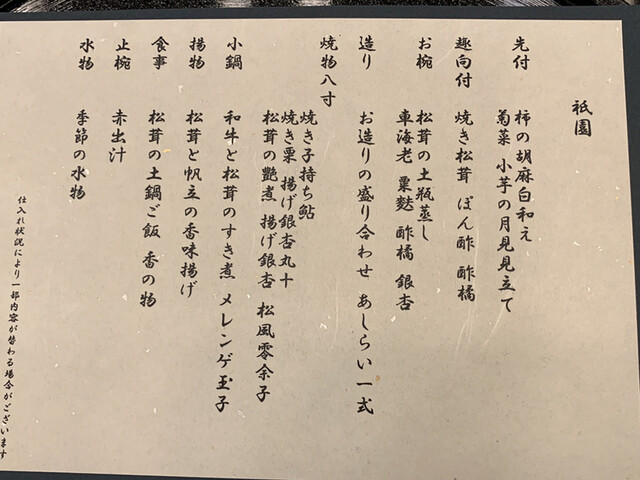 祇園
先付　柿の胡麻白和え
菊菜　小芋の月見見立て
趣向付　焼き松茸　ぽん酢　酢橘
お椀　松茸の土瓶蒸し
車海老　粟麩　酢橘　銀杏
造り　お造りの盛り合わせ　あしらい一式
焼物八寸
焼き子持ち鮎
焼き栗　揚げ銀杏丸十
松茸の艶煮　揚げ銀杏　松風零余子
小鍋　和牛と松茸のすき煮　メレンゲ玉子
揚物　松茸と帆立の香味揚げ
食事　松茸の土鍋ご飯　香の物
止椀　赤出汁
水物　季節の水物
仕入れ状況により一部内容が替わる場合がございます